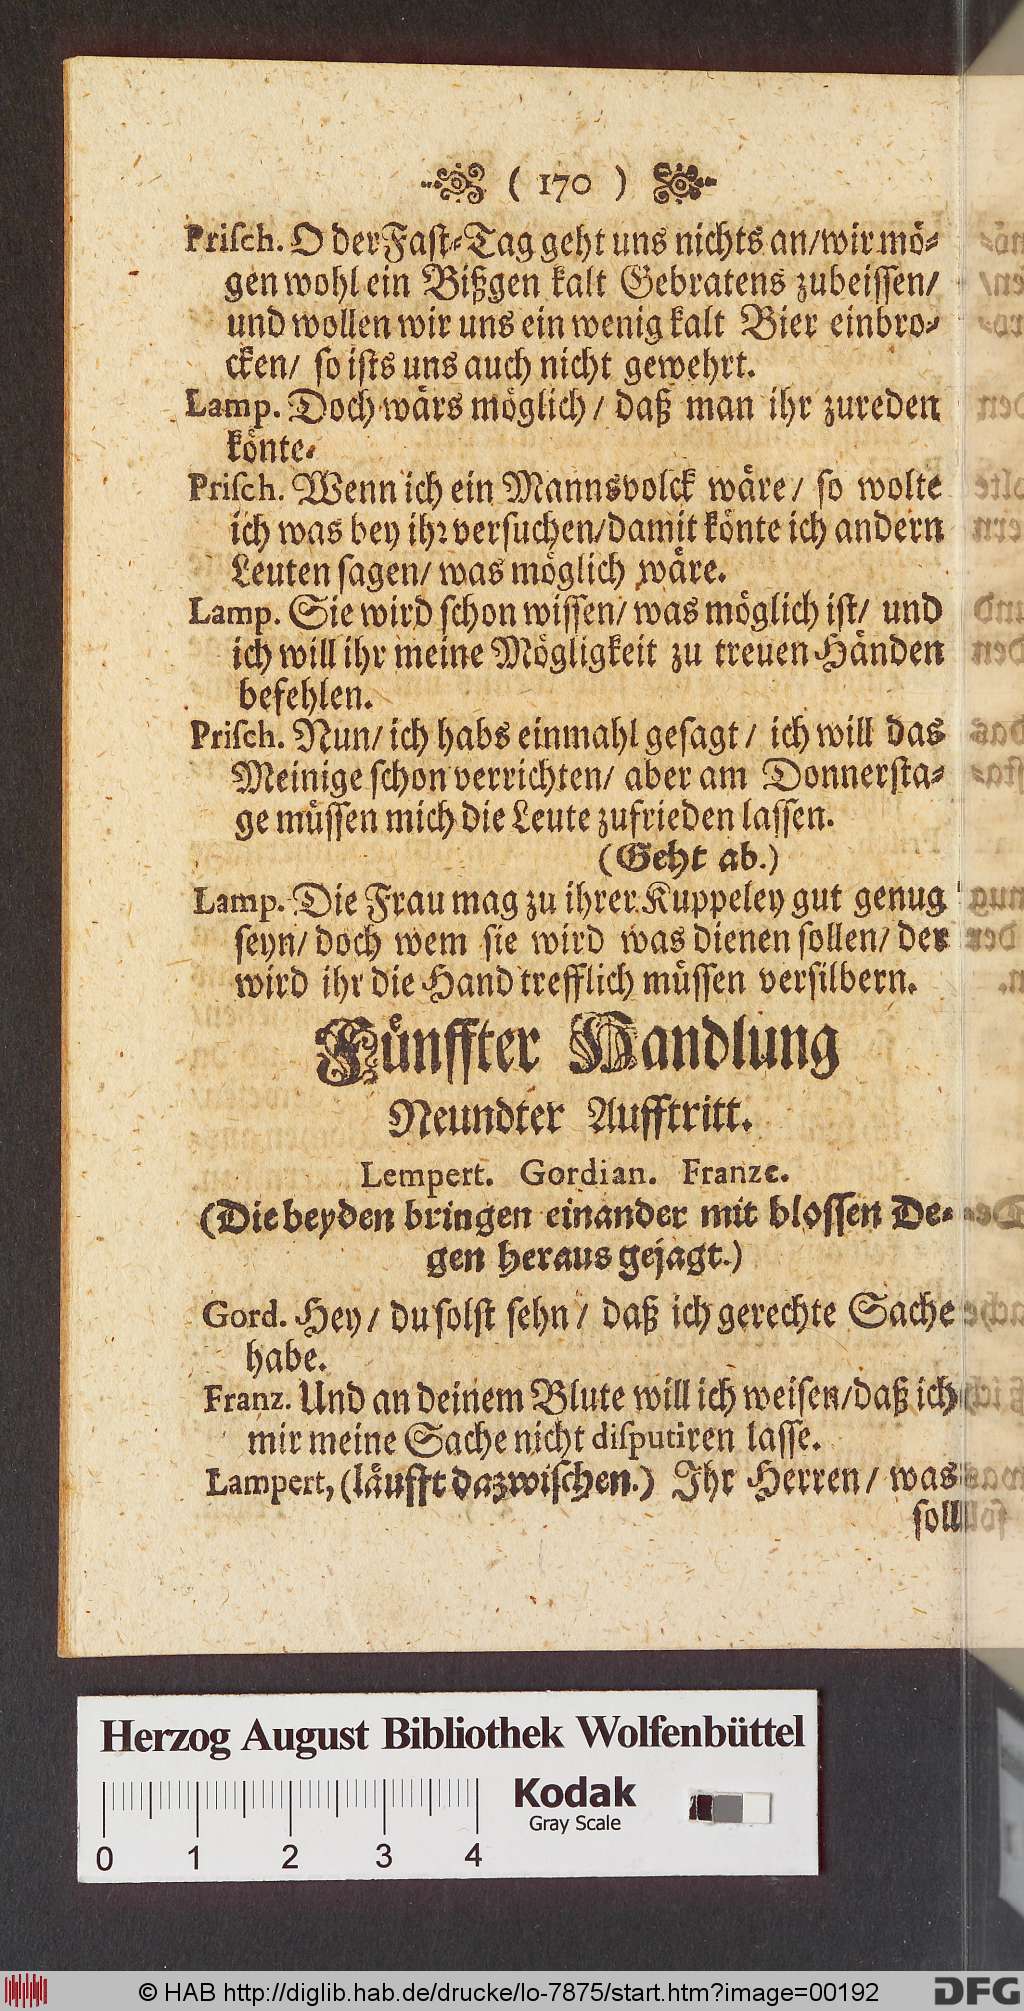 ( 170 )
Priſch. O der Faſt-Tag geht uns nichts an/ wir mö-
gen wohl ein Bißgen kalt Gebratens zubeiſſen/
und wollen wir uns ein wenig kalt Bier einbro-
cken/ ſo iſts uns auch nicht gewehrt.
Lamp. Doch wärs möglich / daß man ihr zureden
könte.
Priſch. Wenn ich ein Mannsvolck wäre/ ſo wolte
ich was bey ihr verſuchen/ damit könte ich andern
Leuten ſagen/ was möglich wäre.
Lamp. Sie wird ſchon wiſſen/ was möglich iſt/ und
ich will ihr meine Mögligkeit zu treuen Händen
befehlen.
Priſch. Nun/ ich habs einmahl geſagt / ich will das
Meinige ſchon verrichten/ aber am Donnerſta-
ge müſſen mich die Leute zufrieden laſſen.
(Geht ab.)
Lamp. Die Frau mag zu ihrer Kuppeley gut genug
ſeyn/ doch wem ſie wird was dienen ſollen/ der
wird ihr die Hand trefflich müſſen verſilbern.
Fünffter Handlung
Neundter Aufftritt.
Lempert. Gordian. Franze.
(Die beyden bringen einander mit bloſſen De-
gen heraus gejagt.)
Gord. Hey / du ſolſt ſehn / daß ich gerechte Sache
habe.
Franz. Und an deinem Blute will ich weiſen/ daß ich
mir meine Sache nicht diſputiren laſſe.
Lampert, (läufft dazwiſchen.) Ihr Herren / was
ſoll
Herzog August Bibliothek Wolfenbüttel
Kodak
Gray Scale
0 1 2 3 4
© HAB http://diglib.hab.de/drucke/lo-7875/start.htm?image=00192
DFG